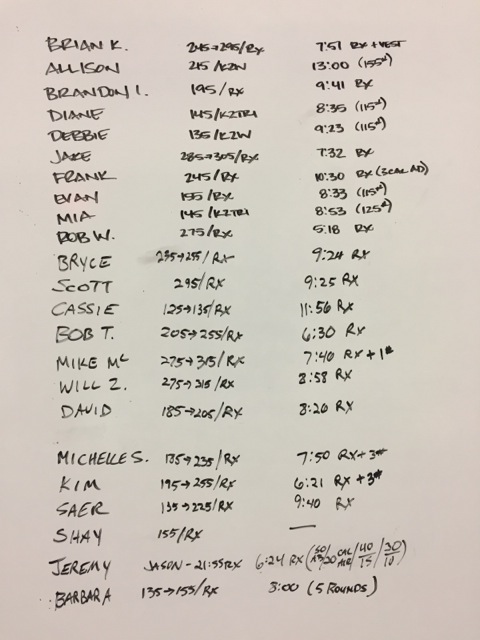 BRIAN K. 245→295/RX 7:51 RX + VEST
ALLISON 215/K2N 13:00 (155#)
BRANDON I. 195/RX 9:41 RX
DIANE 145/K2TRI 8:35 (115#)
DEBBIE 135/K2W 9:23 (115#)
JAKE 285→305/RX 7:32 RX
FRANK 245/RX 10:30 RX (3CAL AD)
EVAN 155/RX 8:33 (115#)
MIA 145/K2TRI 8:53 (125#)
ROB W. 275/RX 5:18 RX
BRYCE 235→255/RX 9:24 RX
SCOTT 295/RX 9:25 RX
CASSIE 125→135/RX 11:56 RX
BOB T. 205→255/RX 6:30 RX
MIKE MC 275→315/RX 7:40 RX + 1#
WILL Z. 275→315/RX 8:58 RX
DAVID 185→205/RX 8:20 RX
MICHELLE S. 135→235/RX 7:50 RX + 3#
KIM 195→255/RX 6:21 RX + 3#
SAER 135→225/RX 9:40 RX
SHAY 155/RX —
JEREMY JASON - 21:55RX 6:24 RX
BARBARA 135→155/RX 3:00 (5 ROUNDS)